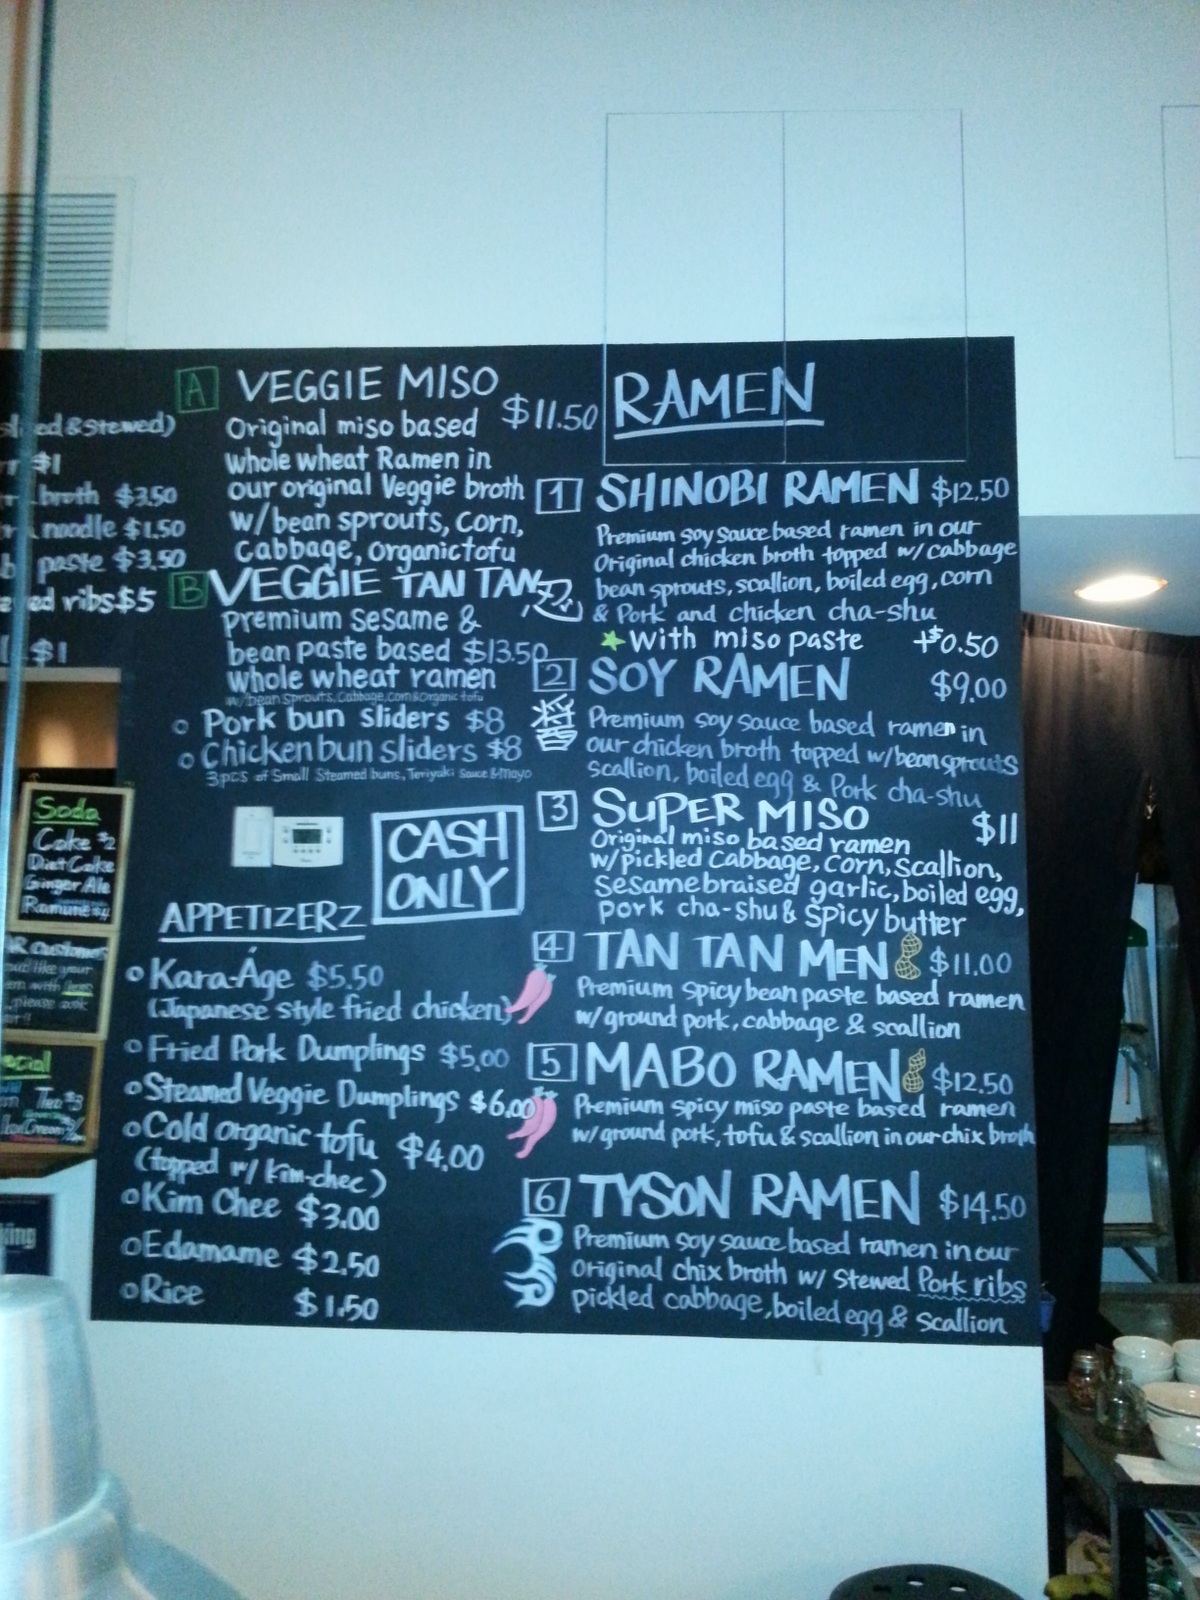 & Stewed)
$1
broth $3.50
noodle $1.50
paste $3.50
ribs $5
$1
A VEGGIE MISO $11.50
Original miso based
whole wheat Ramen in
our original Veggie broth
w/bean sprouts, corn,
cabbage, organic tofu
B VEGGIE TAN TAN
premium sesame &
bean paste based $13.50
whole wheat ramen
w/bean sprouts, Cabbage, Corn & Organic tofu
Pork bun sliders $8
Chicken bun sliders $8
3pcs of Small Steamed buns, Teriyaki Sauce & Mayo
CASH
ONLY
APPETIZERZ
Kara-Áge $5.50
(Japanese style fried chicken)
Fried Pork Dumplings $5.00
Steamed Veggie Dumplings $6.00
Cold organic tofu $4.00
(topped w/ kim-chee)
Kim Chee $3.00
Edamame $2.50
Rice $1.50
RAMEN
1 SHINOBI RAMEN $12.50
忍
Premium soy sauce based ramen in our
Original chicken broth topped w/cabbage
bean sprouts, scallion, boiled egg, corn
& Pork and chicken cha-shu
With miso paste +$0.50
2 SOY RAMEN $9.00
Premium soy sauce based ramen in
our chicken broth topped w/bean sprouts
scallion, boiled egg & Pork cha-shu
3 SUPER MISO $11
Original miso based ramen
w/pickled cabbage, corn, scallion,
sesame braised garlic, boiled egg,
pork cha-shu & spicy butter
4 TAN TAN MEN $11.00
Premium spicy bean paste based ramen
w/ground pork, cabbage & scallion
5 MABO RAMEN $12.50
Premium spicy miso paste based ramen
w/ground pork, tofu & scallion in our chix broth
6 TYSON RAMEN $14.50
Premium soy sauce based ramen in our
original chix broth w/ stewed Pork ribs
pickled cabbage, boiled egg & scallion
Soda
Coke $2
Diet Coke
Ginger Ale
Ramune $4